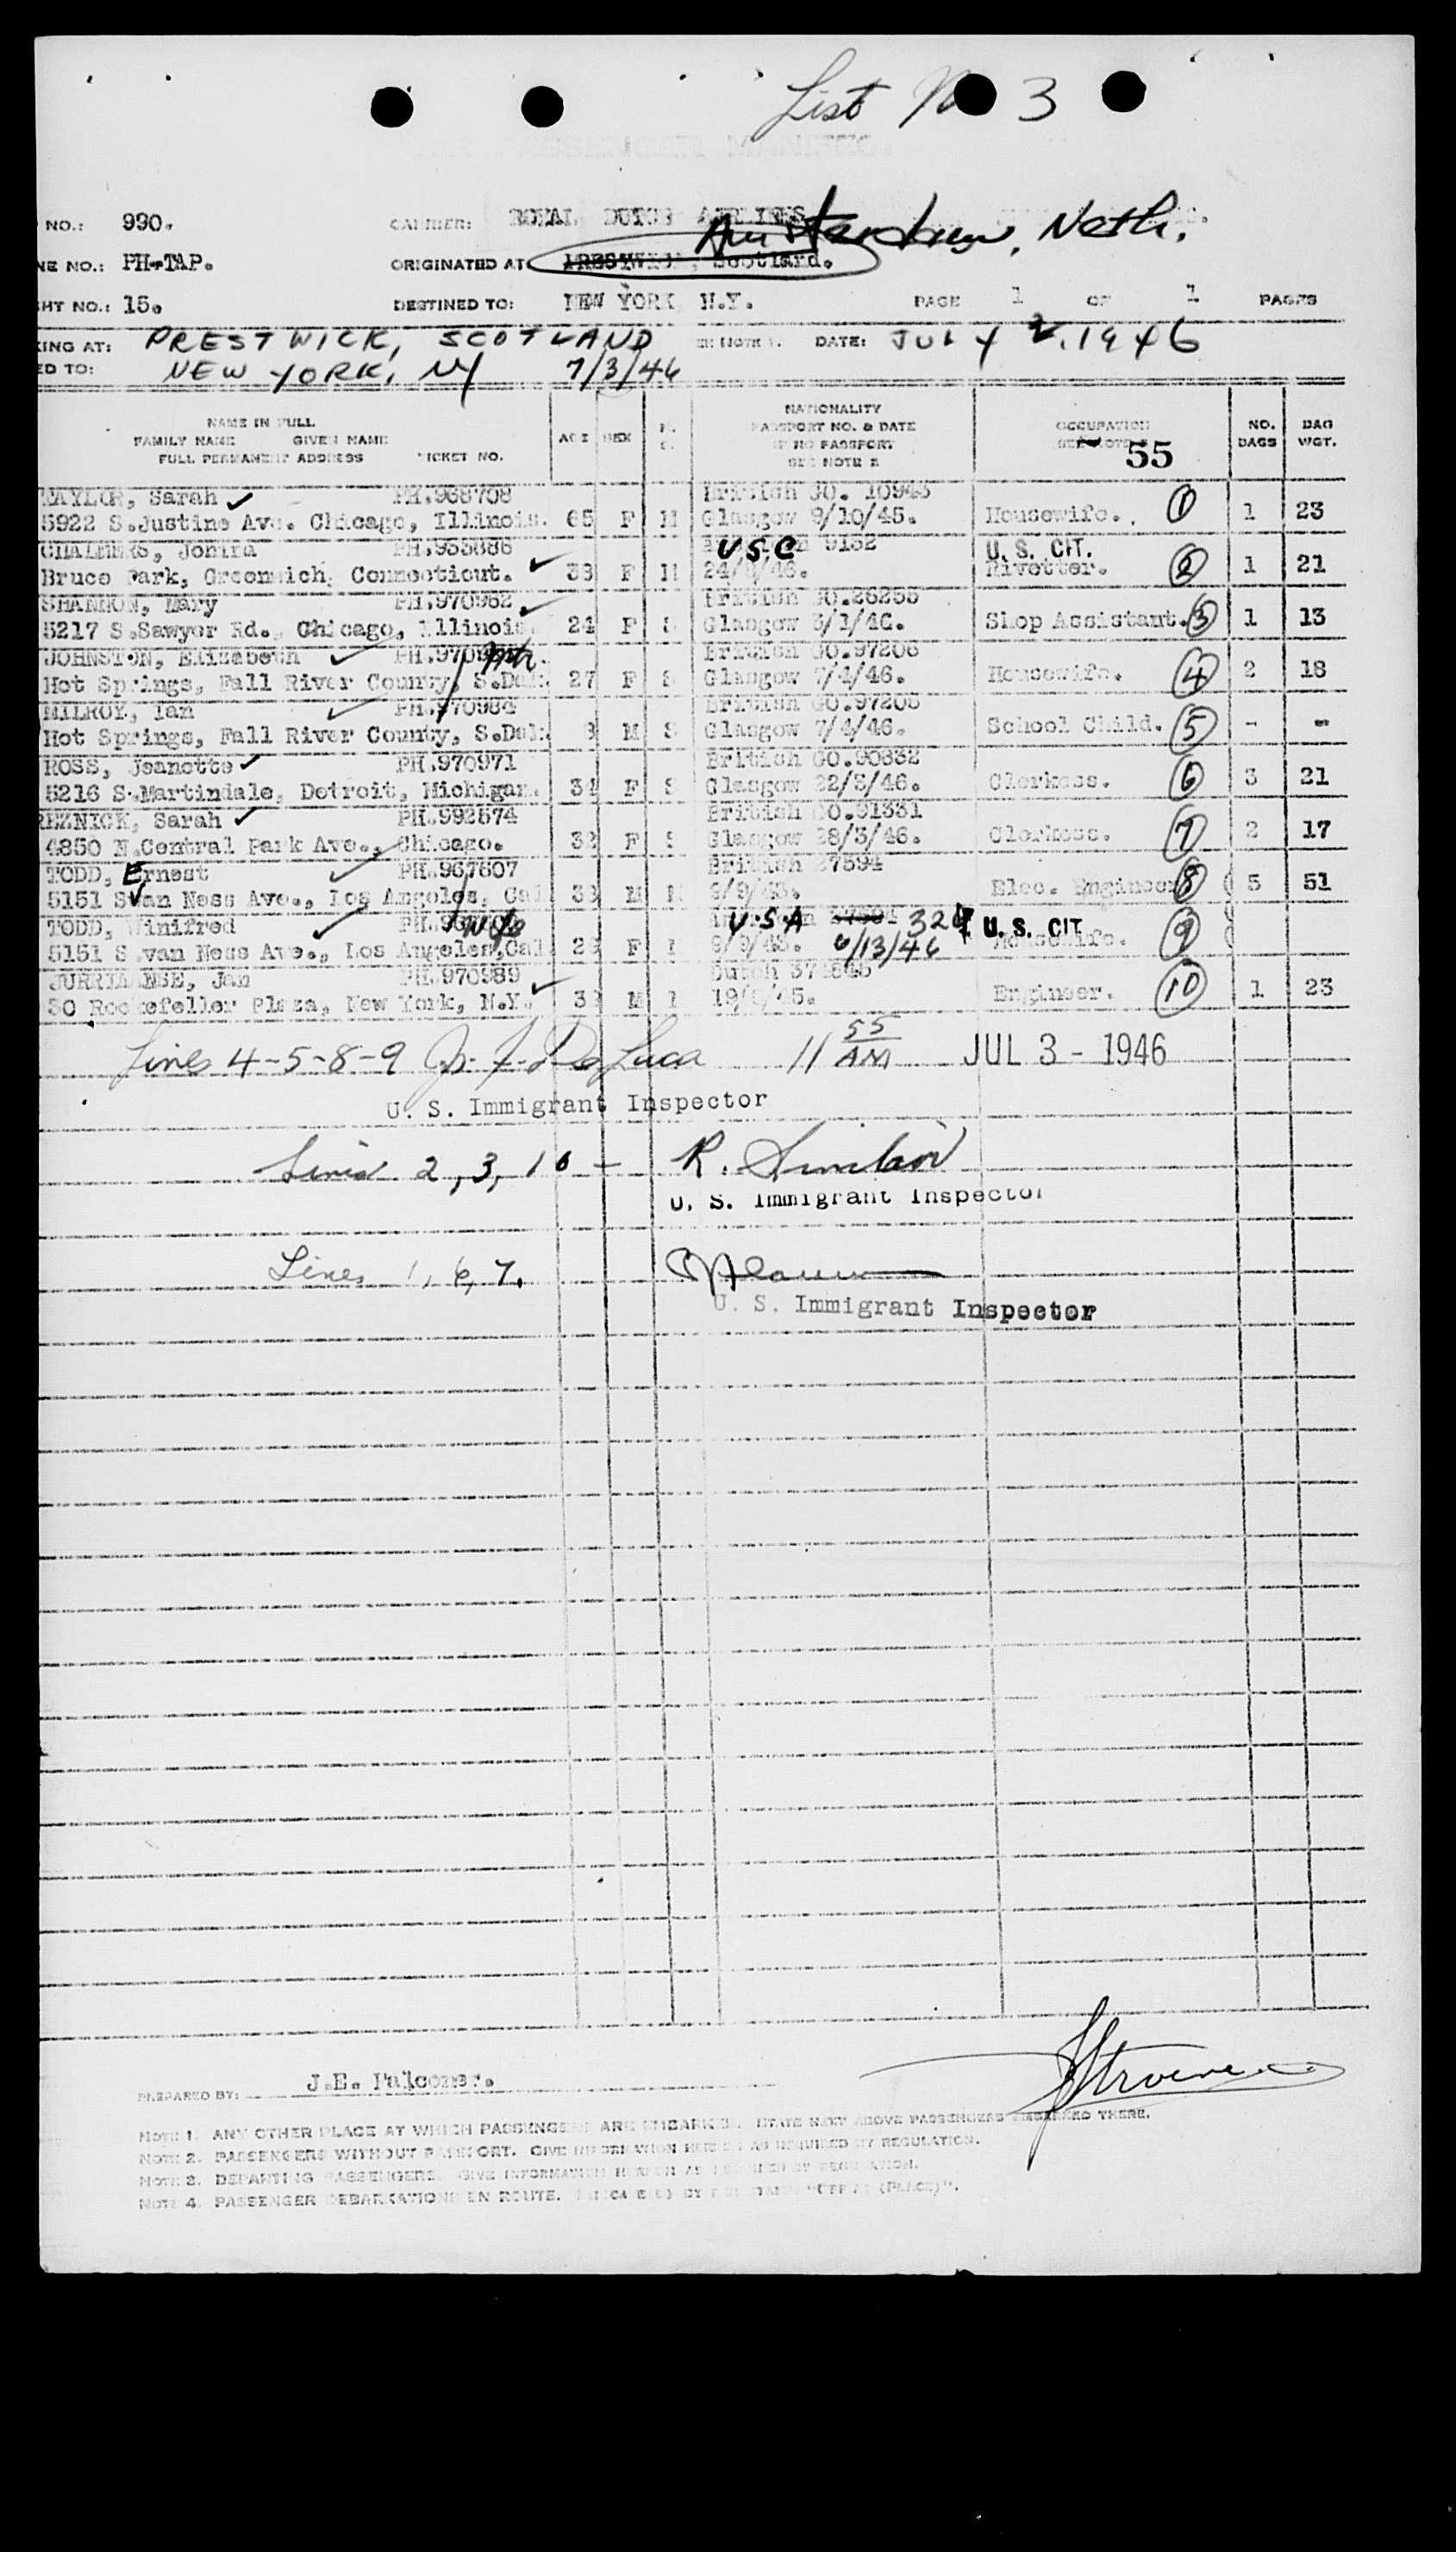 List No 3
NO.: 990. CARRIER: ROYAL DUTCH AIRLINES
Amsterdam, Neth.
NE NO.: PH-TAP. ORIGINATED AT: PRESTWICK, Scotland.
HT NO.: 15. DESTINED TO: NEW YORK N.Y. PAGE 1 OF 1 PAGES
KING AT: PRESTWICK, SCOTLAND DATE: JULY 2, 1946
ED TO: NEW YORK, NY 7/3/46
NAME IN FULL
FAMILY NAME GIVEN NAME
FULL PERMANENT ADDRESS TICKET NO.
AGE SEX
NATIONALITY
PASSPORT NO. & DATE
IF NO PASSPORT
SEE NOTE 2
OCCUPATION
SEE NOTE
55
NO. BAGS
BAG WGT.
TAYLOR, Sarah PH.968708 British GO. 10943
5922 S.Justine Ave. Chicago, Illinois. 65 F Glasgow 9/10/45. Housewife. 1 1 23
CHALMERS, PH.953886 U.S.C 9152 U. S. CIT.
Bruce Park, Greenwich, Connecticut. F Rivetter. 2 1 21
SHANNON, Mary PH.970962 British GO.26255
5217 S.Sawyer Rd., Chicago, Illinois. 24 F S Glasgow Shop Assistant. 3 1 13
JOHNSTON, Elizabeth British GO.97206
Hot Springs, Fall River County, S.Dak. 27 F S Glasgow 7/4/46. Housewife. 4 2 18
MILROY, Ian PH.970984 British GO.97205
Hot Springs, Fall River County, S.Dak. M S Glasgow 7/4/46. School Child. 5 - -
ROSS, Jeanette PH.970971 British GO.90832
5216 S.Martindale, Detroit, Michigan. 34 F S Glasgow 22/3/46. Clerkess. 6 3 21
REZNICK, Sarah PH.992574 British GO.91331
4850 N.Central Park Ave., Chicago. 32 F S Glasgow 28/3/46. Clerkess. 7 2 17
TODD, Ernest PH.967607 British 27594
5151 S van Ness Ave., Los Angeles, Cal M Elec. Engineer 8 5 51
TODD, Winifred Wife U.S.A U. S. CIT
5151 S.van Ness Ave., Los Angeles, Cal F 6/13/46 Housewife. 9
JURRIAANSE, Jan PH.970989 Dutch
30 Rockefeller Plaza, New York, N.Y. M Engineer. 10 1 23
Lines 4-5-8-9 De Luca 11 55 AM JUL 3 - 1946
U. S. Immigrant Inspector
Lines 2, 3, 10 - R. Sinclair
U. S. Immigrant Inspector
Lines 1, 6, 7.
U. S. Immigrant Inspector
PREPARED BY: J.E. Falconer.
NOTE 1. ANY OTHER PLACE AT WHICH PASSENGERS ARE EMBARKED. STATE NEXT ABOVE PASSENGERS EMBARKED THERE.
NOTE 2. PASSENGERS WITHOUT PASSPORT. GIVE INFORMATION HEREON AS REQUIRED BY REGULATION.
NOTE 3. DEPARTING PASSENGERS. GIVE INFORMATION HEREON AS REQUIRED BY REGULATION.
NOTE 4. PASSENGER DEBARKATIONS EN ROUTE. INDICATE(S) BY "OFF AT (PLACE)".